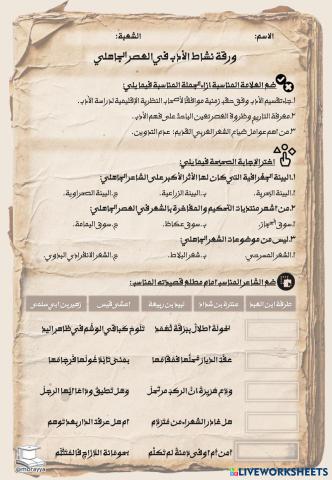 الاسم: الشعبة:
ورقة نشاط الأدب في العصر الجاهلي
ضع العلامة المناسبة ازاء الجملة المناسبة فيما يلي:
1.جاء تقسيم الأدب وفق حقب زمنية موافقًا لأصحاب النظرية الإقليمية لدراسة الأدب.
2.معرفة التاريخ وظروف العصر تعين الباحث على فهم الأدب.
3.من أهم عوامل ضياع الشعر العربي القديم: عدم التدوين.
اختر الإجابة الصحيحة فيما يلي:
1.البيئة الجغرافية التي كان لها الأثر الأكبر على الشاعر الجاهلي:
أ.البيئة البحرية. ب.البيئة الزراعية. ج.البيئة الصحراوية.
2.من أشهر منتديات التحكيم والمفاخرة بالشعر في العصر الجاهلي:
أ.سوق الحجاز. ب.سوق عكاظ. ج.سوق اليمامة.
3.ليس من موضوعات الشعر الجاهلي:
أ.الشعر المسرحي. ب.شعر البلاط. ج.الشعر الانفرادي البدوي.
ضع الشاعر المناسب أمام مطلع قصيدته المناسب:
طرفة ابن العبد عنترة بن شداد لبيد بن ربيعة أعشى قيس زهير بن أبي سلمى
لخولة أطلال ببرقة ثهمد تلوح كباقي الوشم في ظاهر اليد
عفت الديار محلها فمقامها بمنى تأبد غولها فرجامها
ودع هريرة إن الركب مرتحل وهل تطيق وداعا أيها الرجل
هل غادر الشعراء من متردم أم هل عرفت الدار بعد توهم
أمن أم أوفى دمنة لم تكلم بحومانة الدراج فالمتثلم
@mbrayya
LIVEWORKSHEETS